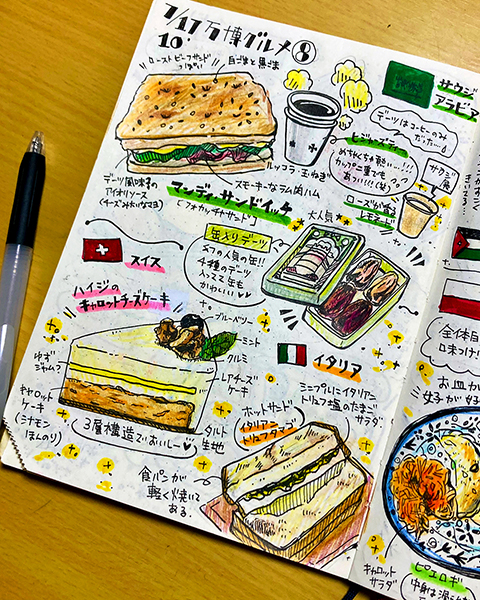 7/17 万博グルメ⑧
10.
ローストビーフサンド
っぽい
白ごまと黒ごま
サウジ
アラビア
デーツはコーヒーのみ
だった…
ヒジャーズティー
めちゃくちゃ熱い…!!!
カップ二重でも
あつい!!!(笑)
サウジ館
ローズが香る
レモネード
大人気
ルッコラ・玉ねぎ
スモーキーなラム肉ハム
デーツ風味の
アイオリソース
(チーズみたいな味)
マンディーサンドイッチ
[フォカッチャサンド]
缶入りデーツ
4種のデーツ
入ってて缶も
かわいい
スイス
ハイジの
キャロットチーズケーキ
ブルーベリー
ミント
クルミ
レアチーズ
ケーキ
タルト
生地
ゆず
ジャム?
キャロット
ケーキ
(シナモン
ほんのり)
3層構造でおいしー
イタリア
シンプルにイタリアン
トリュフ塩のたまご
サラダ。
ホットサンド
イタリアン
トリュフタップ
食パンが
軽く焼いて
ある。
全体的
味つけ
お皿が
女子が好
キャロット
サラダ
ピエロギ
中身は